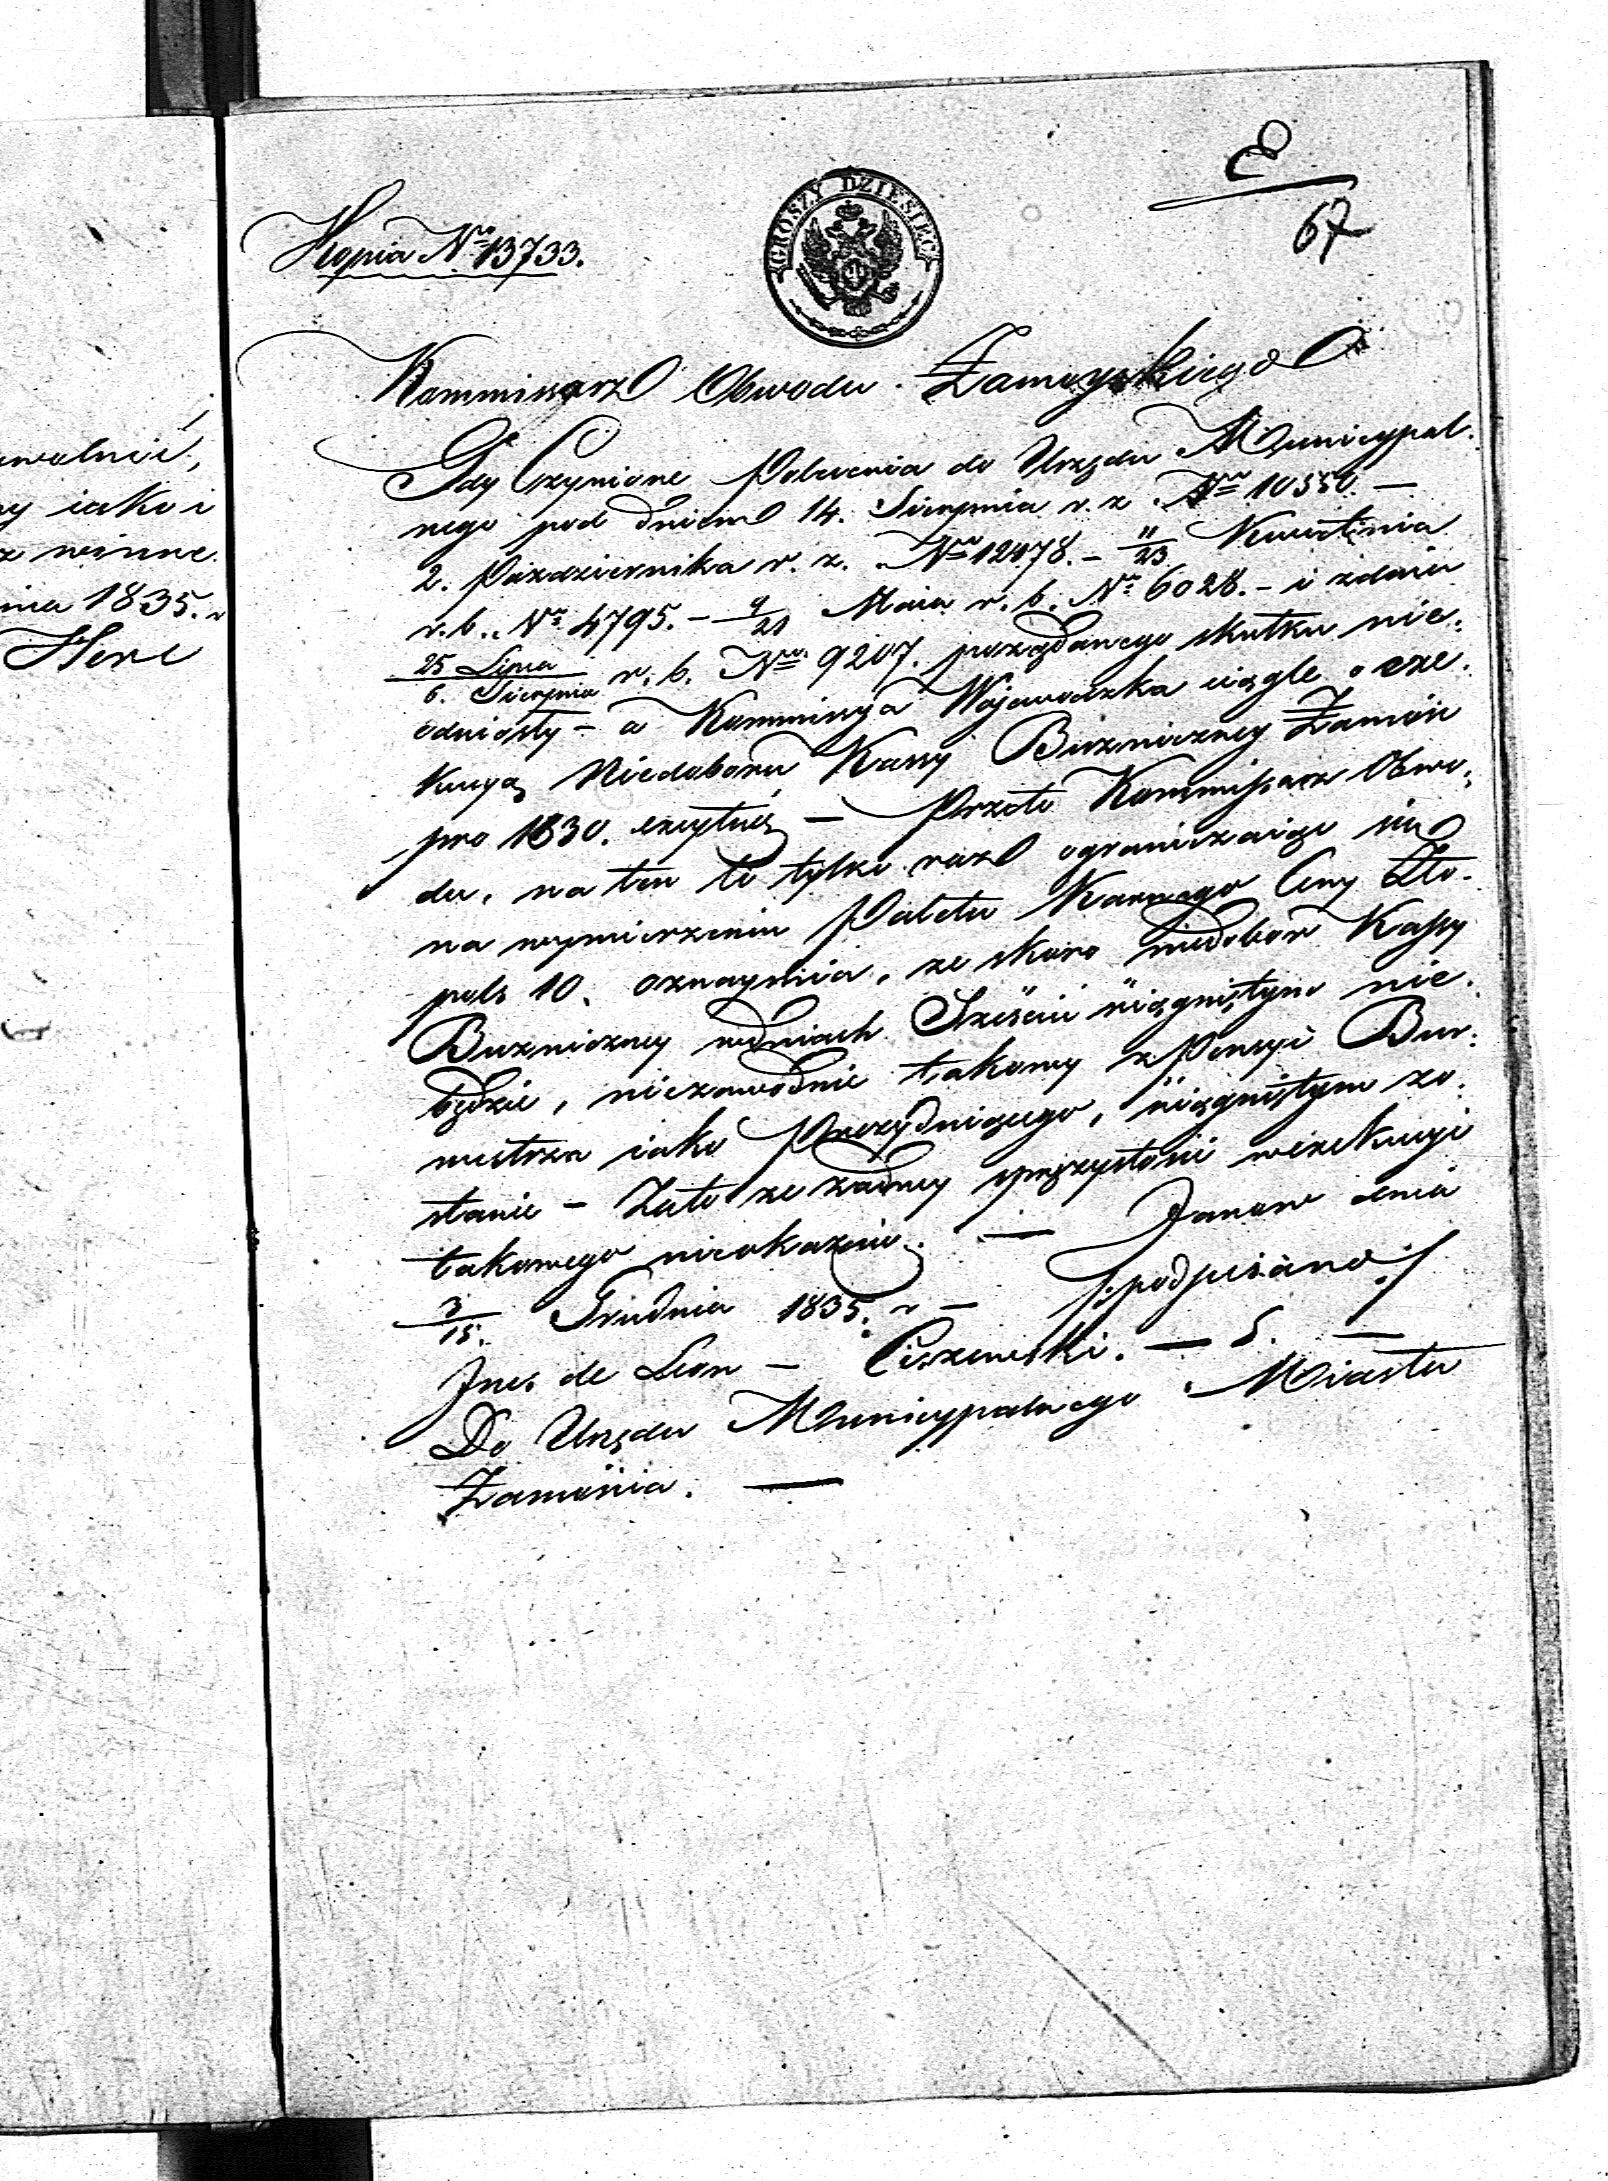 walnie,
y iako i
z winne
nia 1835. r
Here
E
67
GROSZY DZIESIĘĆ
Kopia Nro 13733.
Kommissarz Obwodu Zamoyskiego
Gdy Czynione Polecenia do Urzędu Municypal-
nego pod dniem 14. Sierpnia r. z. Nro 10550. —
2. Października r. z. Nro 12478. — 11/23 Kwietnia
r. b. Nro 4795. — 9/21 Maia r. b. No 6028. — i zdnia
25 Lipca / 6. Sierpnia r. b. Nro 9207. pożądanego skutku nie-
odniosły — a Kommissya Wojewodzka ciągle o exe-
kucyą Niedoboru Kassy Bużniczney Zamość
pro 1830. excytuie — Przeto Kommissarz Obwo-
du, na ten to tylko raz ograniczaiąc się
na wymierzeniu Paletu Karnego Ceny Zło.
pols 10. oznaymia, że skoro niedobor Kassy
Buzniczney wdniach Sześciu ściągniętym nie-
będzie, niezawodnie takowy z Pensyi Bur-
mistrza iako Prezyduiącego, ściągniętym zo-
stanie — Zato że żadney sprężystości wexekucyi
takowego nieokazuie. — Janow dnia
3/15. Grudnia 1835. r — /:podpisano:/
Jnes de Leon — Ciszewski. — S. —
Do Urzędu Municypalnego Miasta
Zamościa. —